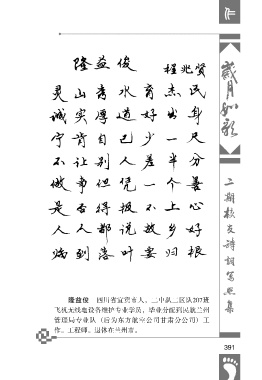 作
岁月如歌
二期校友诗词写照集
隆益俊
程兆贤
灵山秀水育杰民
诚实厚道好出身
宁肯自己少一尺
不让别人差半分
做事但凭一个善
是否得报不上心
人人都说故乡好
临到落叶要归根
隆益俊 四川省宜宾市人。二中队二区队207班
飞机无线电设备维护专业学员,毕业分配到民航兰州
管理局专业队(后为东方航空公司甘肃分公司)工
作。工程师。退休在兰州市。
391